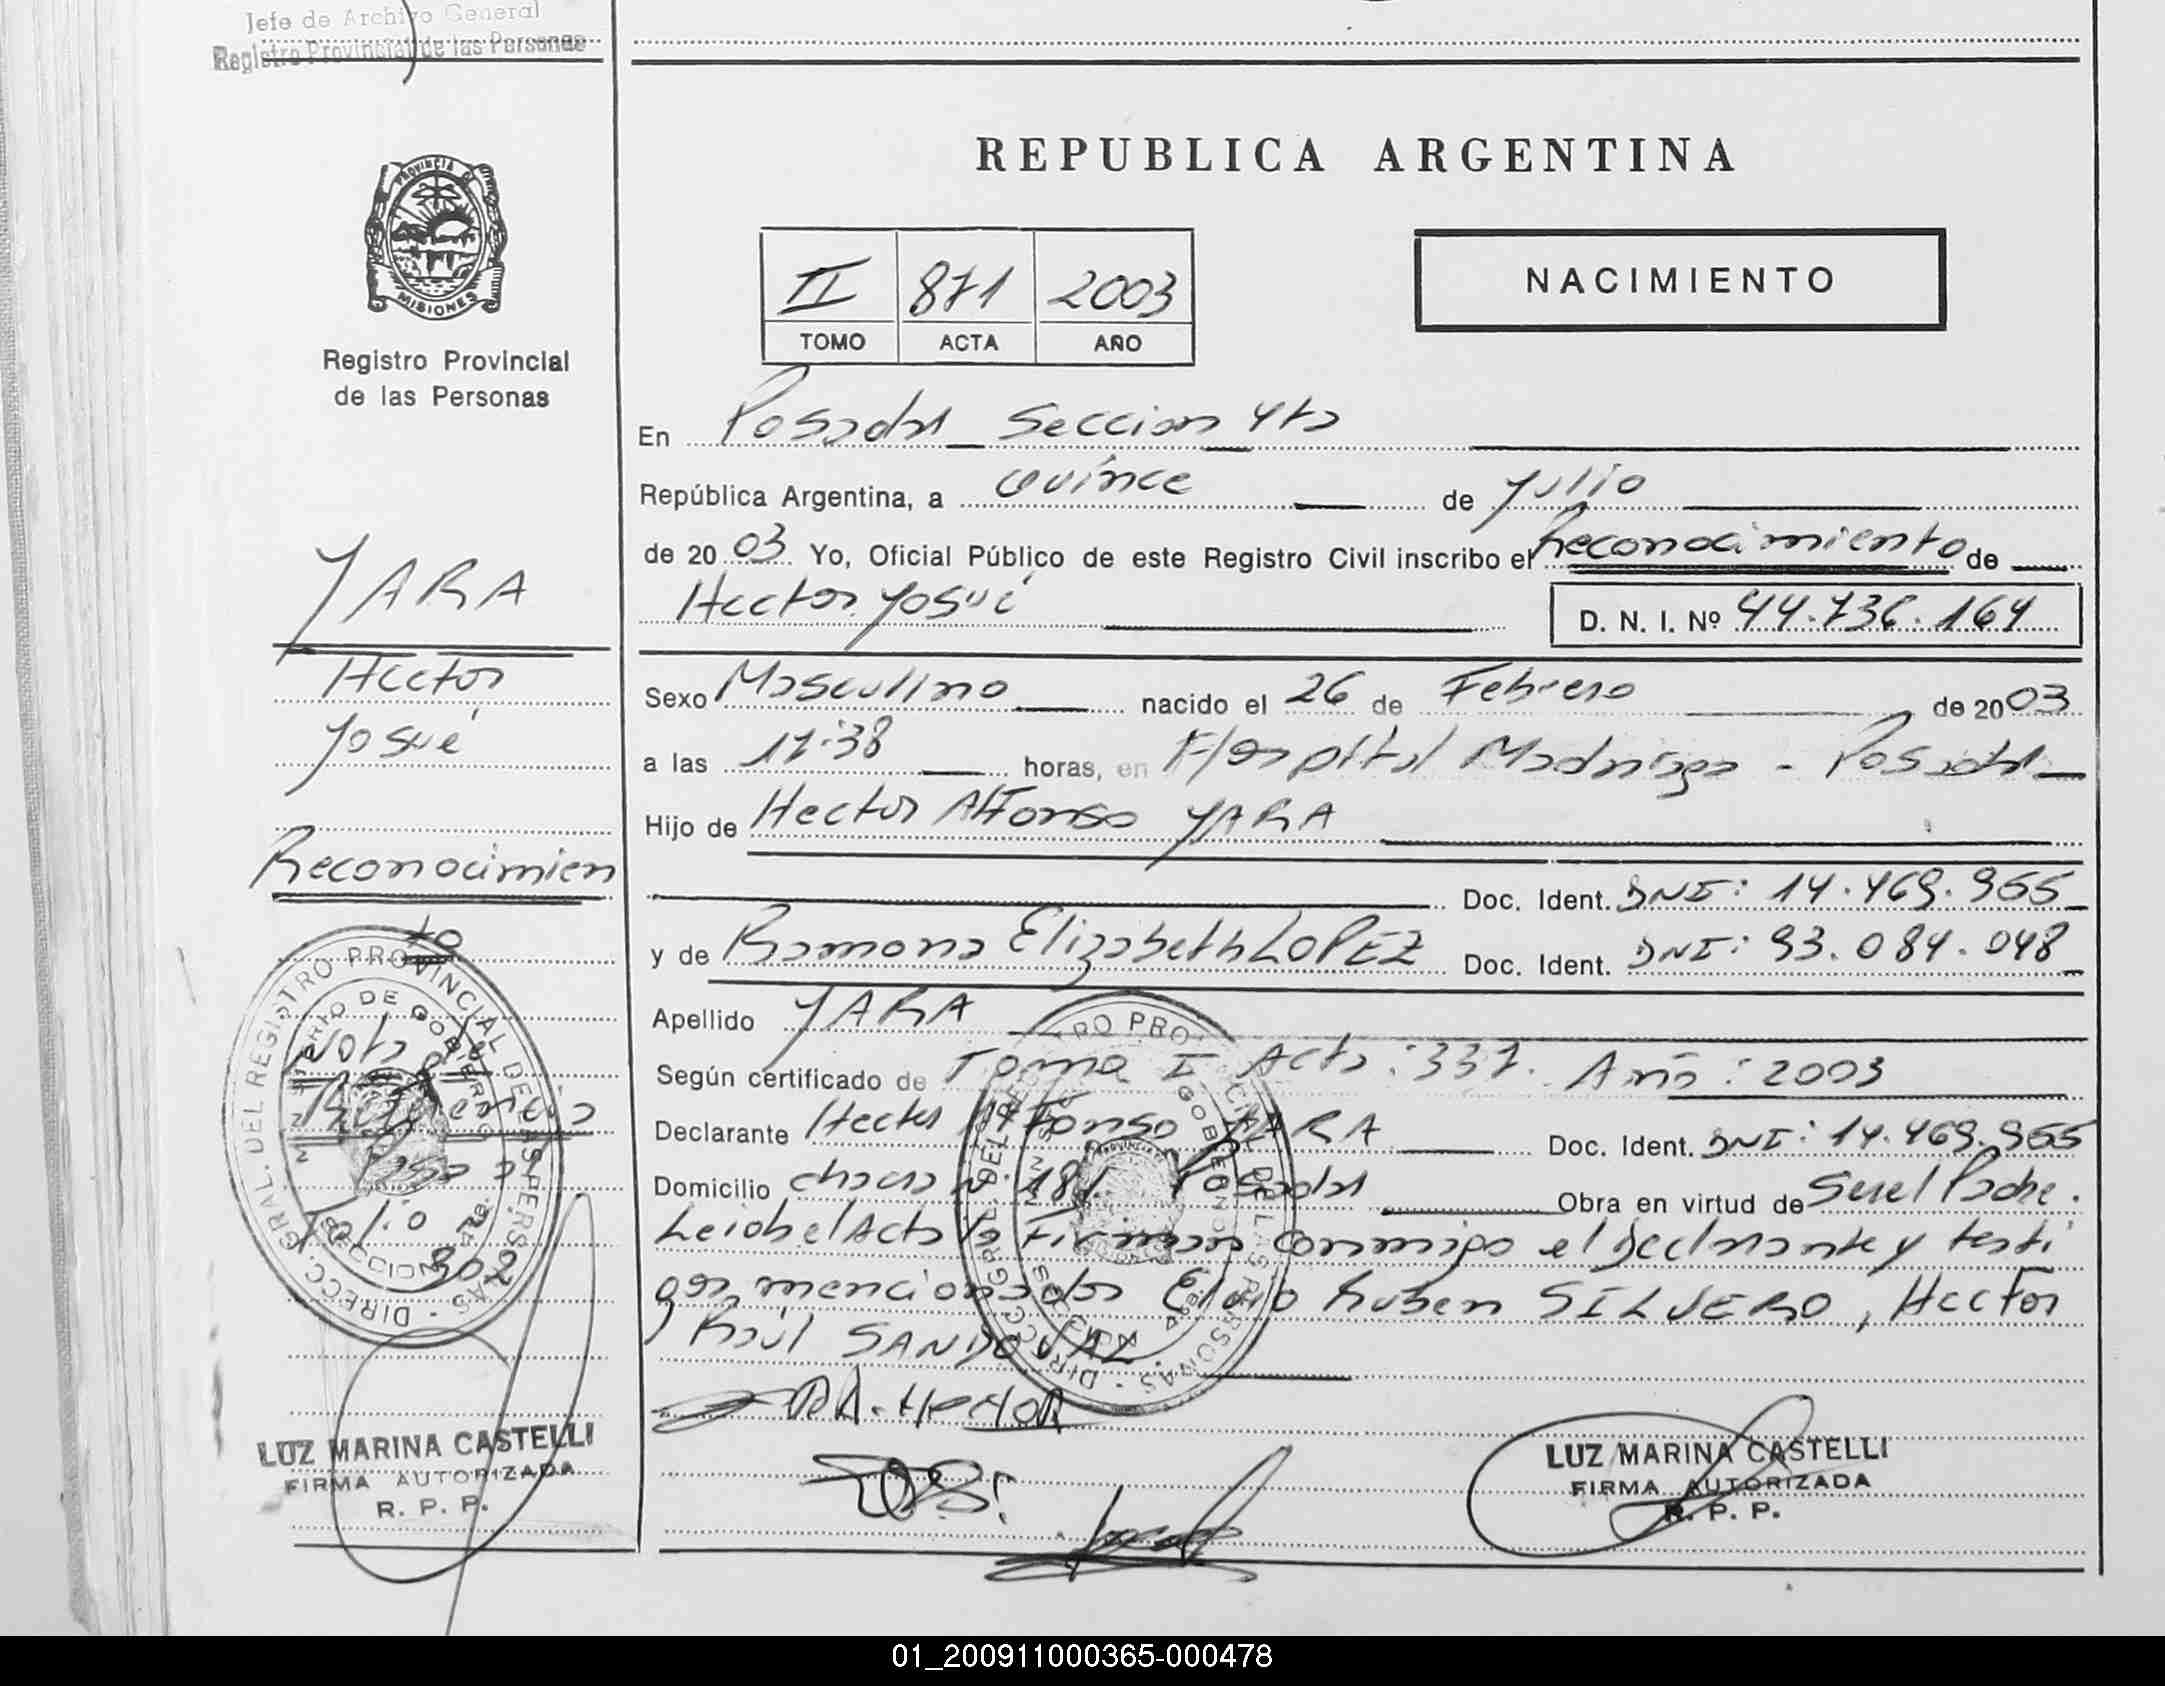 Jefe de Archivo General
Registro Provincial de las Personas
PROVINCIA DE
MISIONES
Registro Provincial
de las Personas
REPUBLICA ARGENTINA
II 871 2003
TOMO ACTA AÑO
NACIMIENTO
En Posadas Seccion 4ta
República Argentina, a Quince de Julio
de 2003 Yo, Oficial Público de este Registro Civil inscribo el Reconocimiento de
Hector Josué
D. N. I. Nº 44.736.164
YARA
Hector
Josué
Reconocimien
to
Nota de
Referencia
Pasa a
Folio
302
Sexo Masculino nacido el 26 de Febrero de 2003
a las 11:38 horas, en Hospital Madariaga - Posadas
Hijo de Hector Alfonso YARA
Doc. Ident. DNI: 14.469.965
y de Ramona Elizabeth LOPEZ Doc. Ident. DNI: 93.084.048
Apellido YARA
Según certificado de Tomo I Acta: 337. Año: 2003
Declarante Hector Alfonso YARA Doc. Ident. DNI: 14.469.965
Domicilio chacra N 181 Posadas Obra en virtud de Ser el Padre.
Leida el Acta la Firman conmigo el Declarante y testi
gos mencionados Elvio Ruben SILVERO, Hector
Raúl SANDOVAL.
DIRECC. GRAL. DEL REGISTRO PROVINCIAL DE LAS PERSONAS
MINISTERIO DE GOBIERNO
SECCION 4ta.
LUZ MARINA CASTELLI
FIRMA AUTORIZADA
R. P. P.
LUZ MARINA CASTELLI
FIRMA AUTORIZADA
R. P. P.
01_200911000365-000478